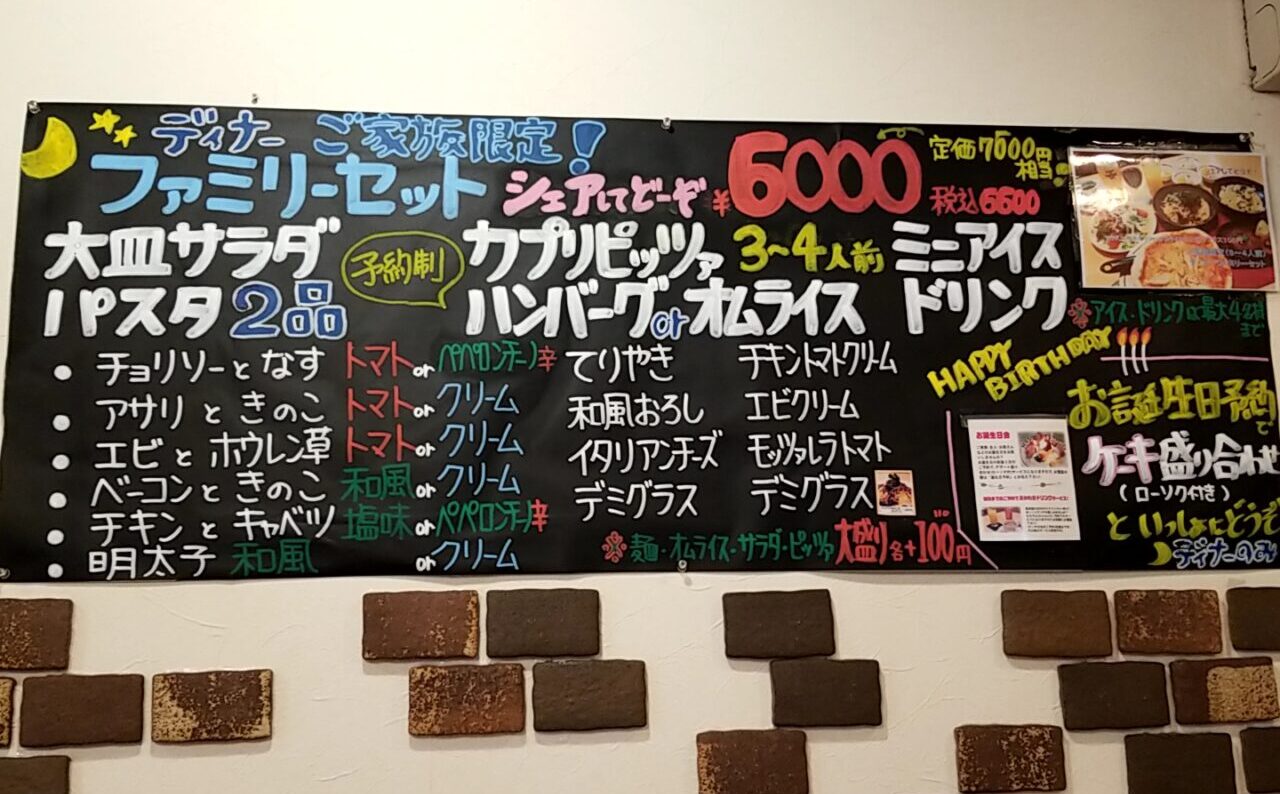 ディナー ご家族限定!
ファミリーセット シェアしてどーぞ ¥6000
定価7600円
相当!
税込6600
大皿サラダ
パスタ 2品
予約制
カプリピッツァ 3~4人前 ミニアイス
ハンバーグorオムライス ドリンク
※アイス・ドリンクは最大4名様
まで
・チョリソーとなす トマトorペペロンチーノ辛
・アサリときのこ トマトorクリーム
・エビとホウレン草 トマトorクリーム
・ベーコンときのこ 和風orクリーム
・チキンとキャベツ 塩味orペペロンチーノ辛
・明太子 和風orクリーム
てりやき
和風おろし
イタリアンチーズ
デミグラス
チキントマトクリーム
エビクリーム
モッツァレラトマト
デミグラス
※麺・オムライス・サラダ・ピッツァ 大盛り各+100円
HAPPY
BIRTHDAY
お誕生日予約で
ケーキ盛り合わせ
(ローソク付き)
といっしょにどうぞ
ディナーのみ
お誕生日会